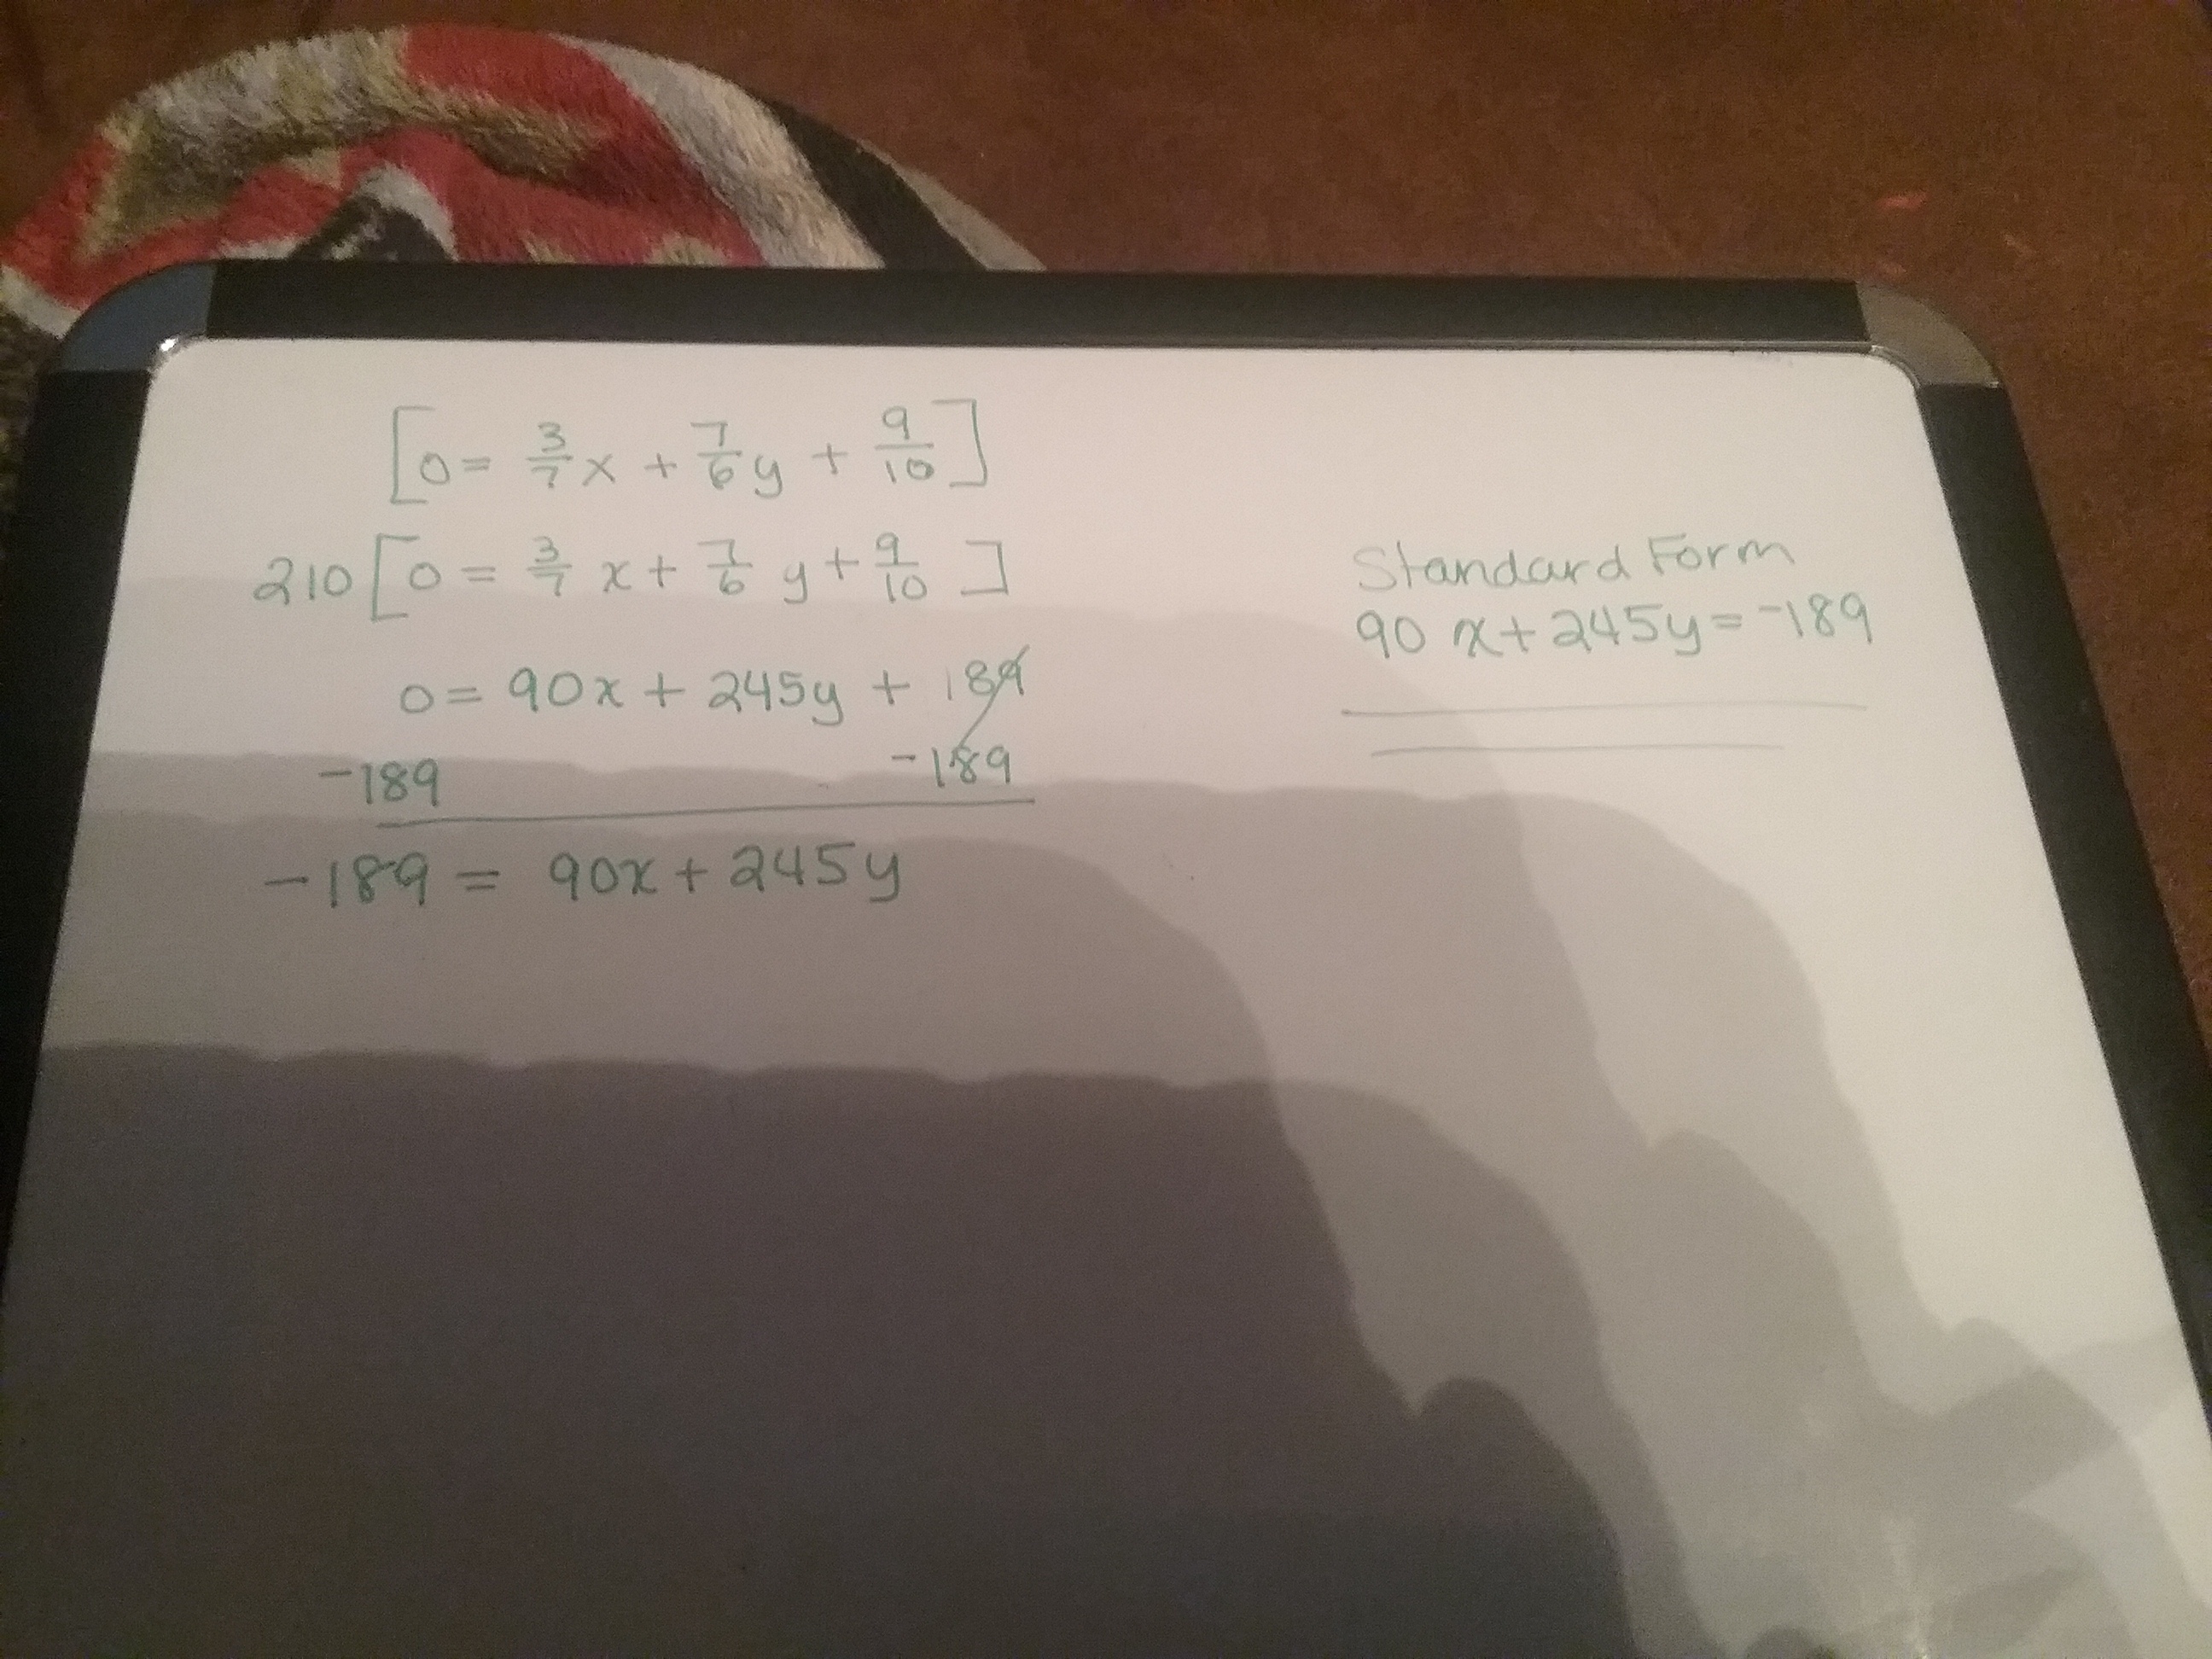 [0 = 3/7 x + 7/6 y + 9/10]
210 [0 = 3/7 x + 7/6 y + 9/10]
0 = 90x + 245y + 189
-189 -189
-189 = 90x + 245y
Standard Form
90 x + 245y = -189